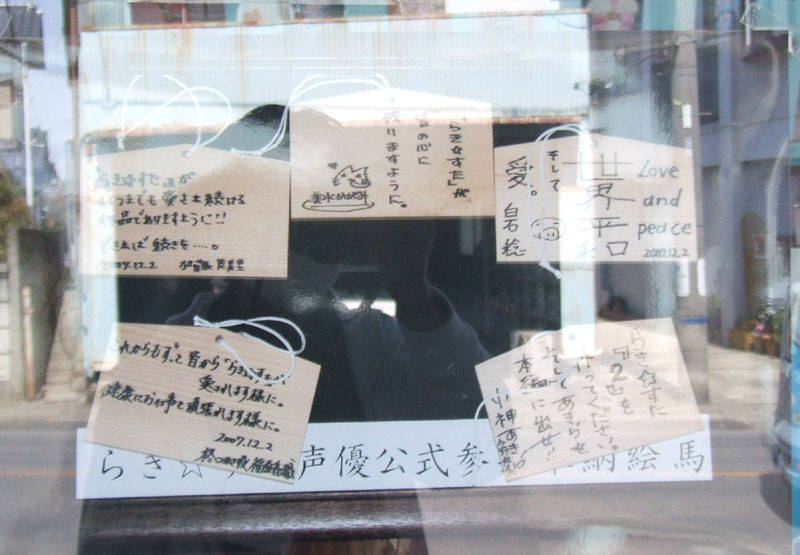 「らき☆すた」が
の心に
残りますように。
らき☆すた
が
いつまでも愛され続ける
作品でありますように!!
できれば続きを…。
2007.12.2
Love
and
peace
2007.12.2
世界平和
そして
愛。
白石稔
これからもずっと皆から「らき☆すた」が
愛されます様に。
健康にお仕事を頑張れます様に。
2007.12.2
らき☆すた
第2期を
作ってください。
そしてあきらを
本編に出せ!!
小神あきら
らき☆
声優公式参
納絵馬